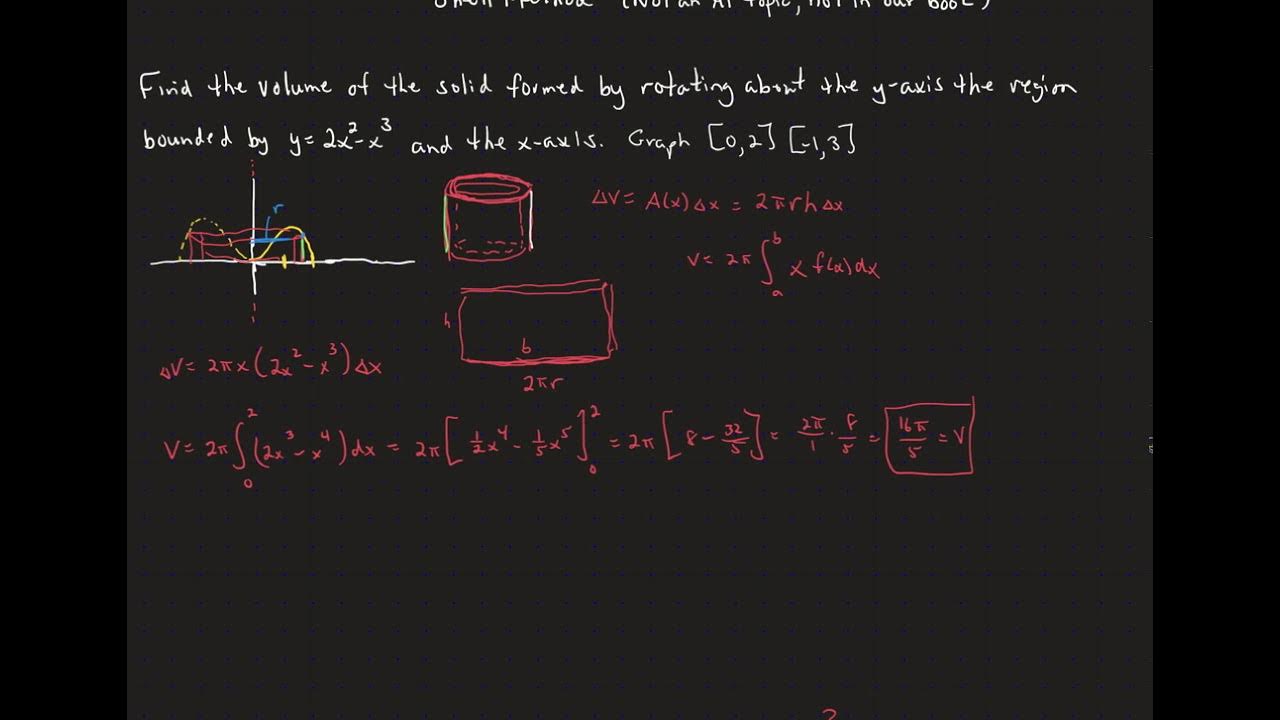 Shell Method (Not an AP topic, not in our book)
Find the volume of the solid formed by rotating about the y-axis the region
bounded by y = 2x² - x³ and the x-axis. Graph [0,2] [-1,3]
r
ΔV = A(x) Δx = 2πrhΔx
V = 2π ∫ₐᵇ x f(x) dx
h
b
2πr
ΔV = 2πx(2x² - x³)Δx
V = 2π ∫₀² (2x³ - x⁴) dx = 2π [ 1/2 x⁴ - 1/5 x⁵ ]₀² = 2π [ 8 - 32/5 ] = 2π/1 · 8/5 = 16π/5 = V